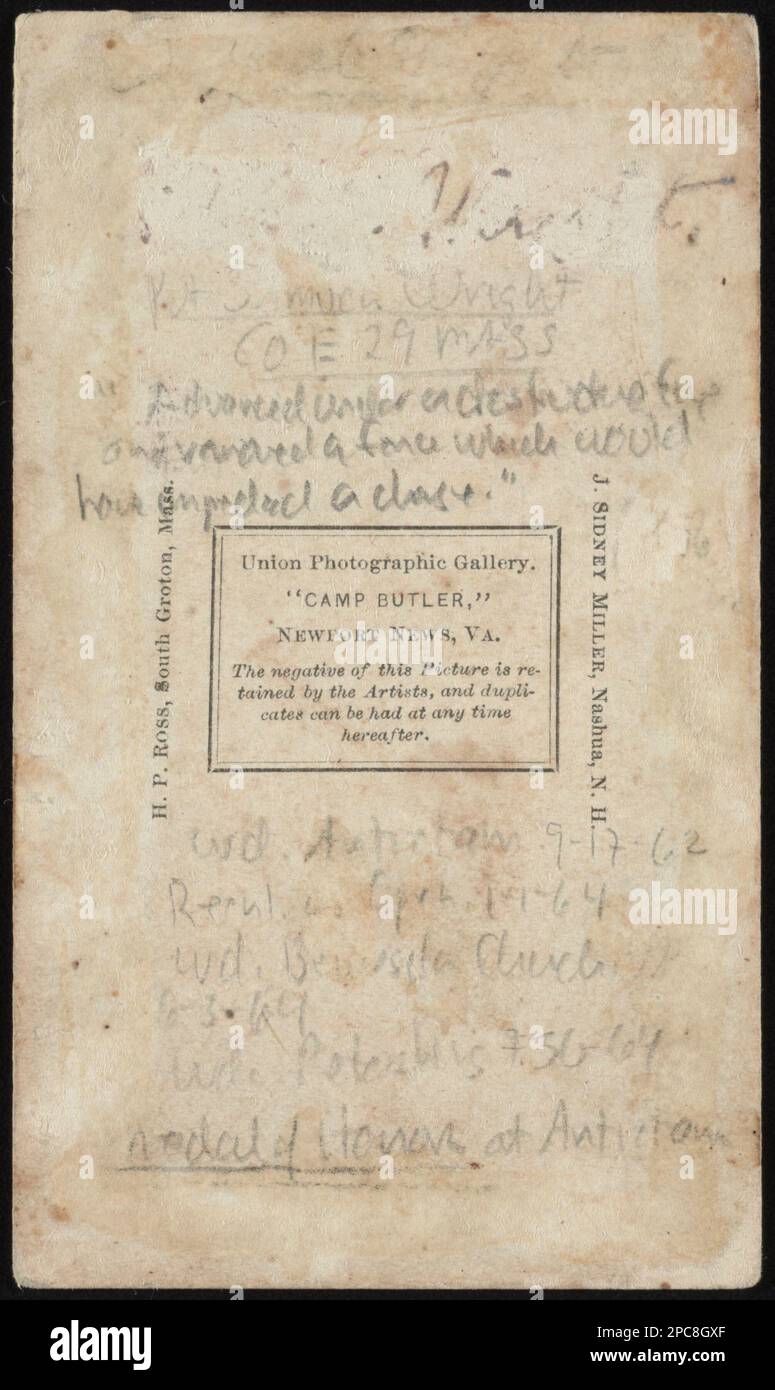 Wright.
Pvt Samuel Wright
CO E 29 MASS
"Advanced under a destructive fire
and removed a fence which would
have impeded a charge."
H. P. Ross, South Groton, Mass.
J. Sidney Miller, Nashua, N. H.
Union Photographic Gallery.
"CAMP BUTLER,"
Newport News, Va.
The negative of this Picture is re-
tained by the Artists, and dupli-
cates can be had at any time
hereafter.
wd. Antietam 9-17-62
1-1-64
wd. Bethesda Church
6-3-64
wd. Petersburg 64
medal of Honor at Antietam
alamy
alamy
alamy
Image ID: 2PC8GXF
www.alamy.com